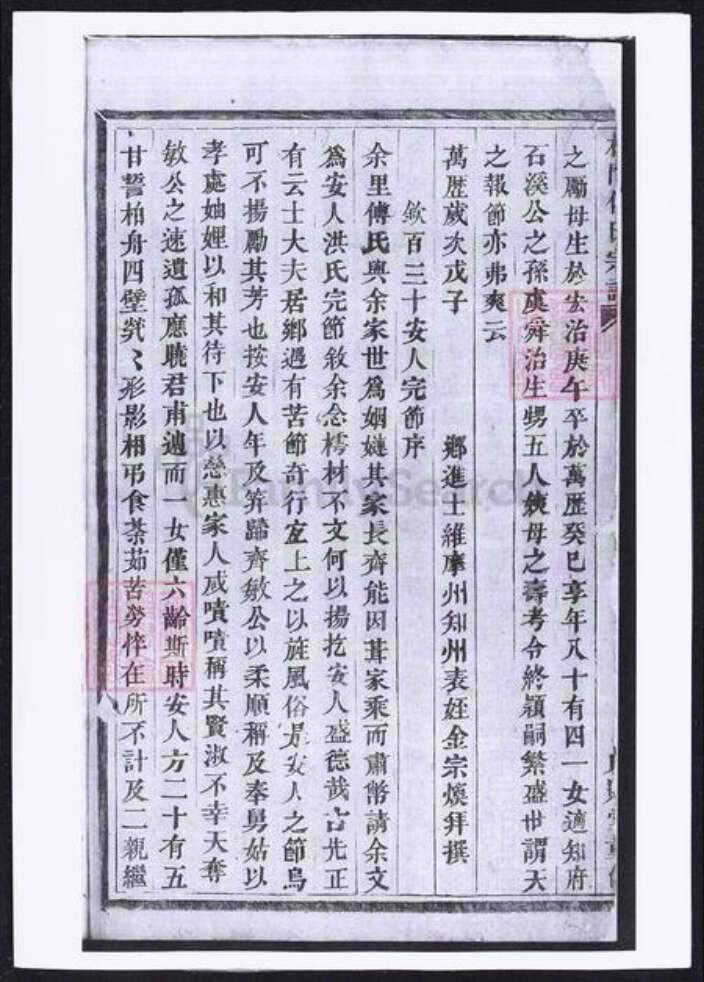 之勵母生於宏治庚午卒於萬歷癸巳享年八十有四一女適知府
石溪公之孫虞舜治生甥五人輓母之壽考令終頴嗣繁盛世謂天
之報節亦弗爽云
萬歷歲次戊子 鄉進士維摩州知州表姪金宗煥拜撰
欽百三十安人完節序
余里傅氏與余家世為姻婕其家長齊能因葺家乘而肅幣請余文
為安人洪氏完節敘余念樗材不文何以揚扢安人盛德哉古先正
有云士大夫居鄉遇有苦節奇行宜上之以旌風俗是安人之節烏
可不揚勵其芳也按安人年及笄歸齊敏公以柔順稱及奉舅姑以
孝處妯娌以和其待下也以慈惠家人咸嘖嘖稱其賢淑不幸天奪
敏公之速遺孤應驍君甫逾而一女僅六齡斯時安人方二十有五
甘誓柏舟四壁煢〻形影相弔食荼茹苦勞悴在所不計及二親繼